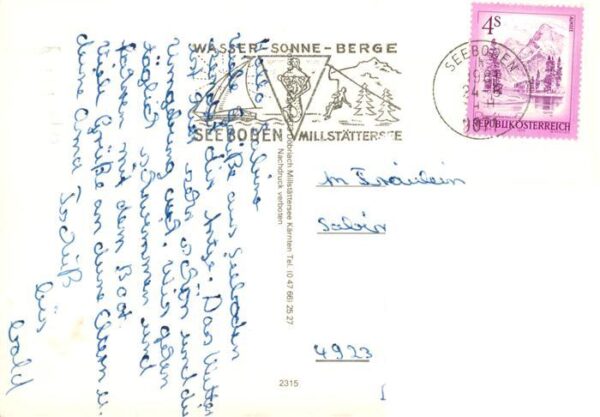 WASSER-SONNE-BERGE
SEEBODEN MILLSTÄTTERSEE
SEEBODEN
4S
ALMSEE
REPUBLIK ÖSTERREICH
Hallo Sabine
viele Grüße aus Seeboden
Das Wetter
ist sehr schön und die
Umgebung auch. Wir gehen
täglich schwimmen und
fahren mit dem Boot.
Viele Grüße an deine Eltern u.
deine Oma
bis
bald
Döbriach Millstättersee Kärnten Tel. (0 47 66) 25 27
Nachdruck verboten
Fräulein
Sabin
4923
2315